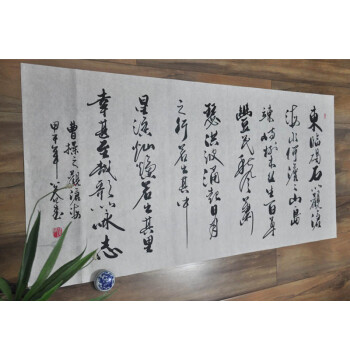 東臨碣石以觀滄
海水何澹々山島
竦峙樹木叢生百草
豐茂秋風蕭
瑟洪波涌起日月
之行若出其中
星漢燦爛若出其里
幸甚至哉歌以詠志
曹操之觀滄海
甲午年